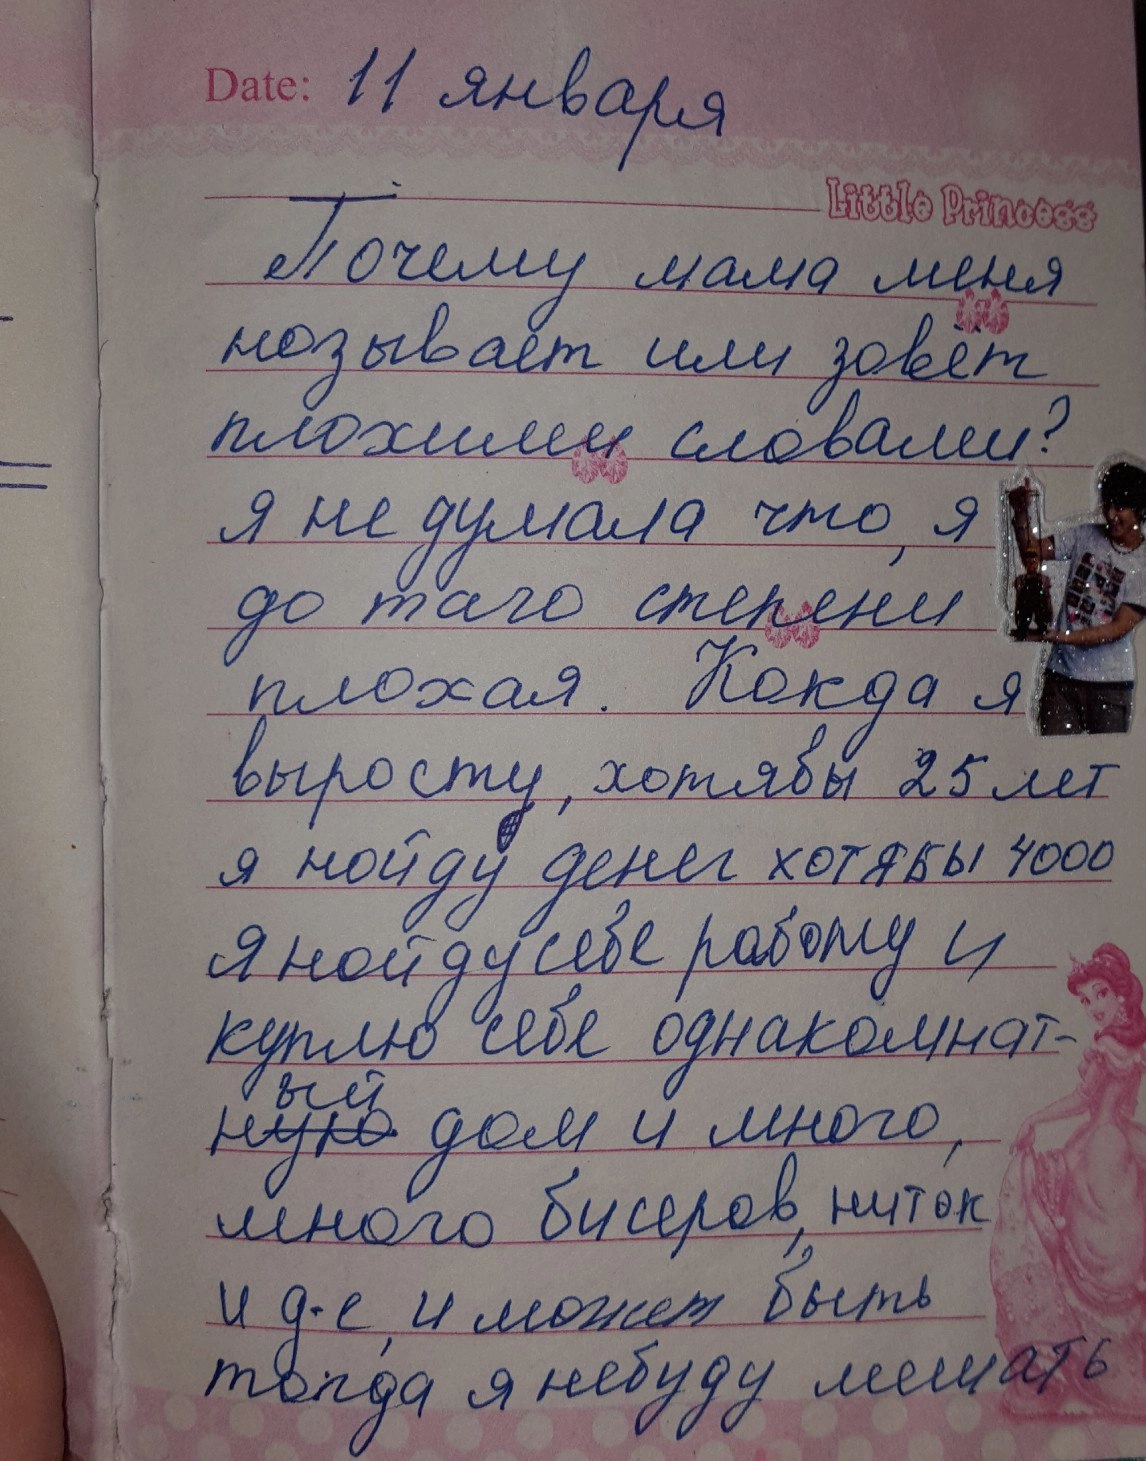 Date: 11 января
Little Princess
Почему мама меня
называет или зовёт
плохими словами?
я не думала что, я
до таго степени
плохая. Кокда я
выросту, хотябы 25 лет
я нойду денег хотябы 4000
Я нойду себе работу и
куплю себе однакомнат-
ный дом и много,
много бисеров, ниток
и д.е, и может быть
тогда я небуду мешать